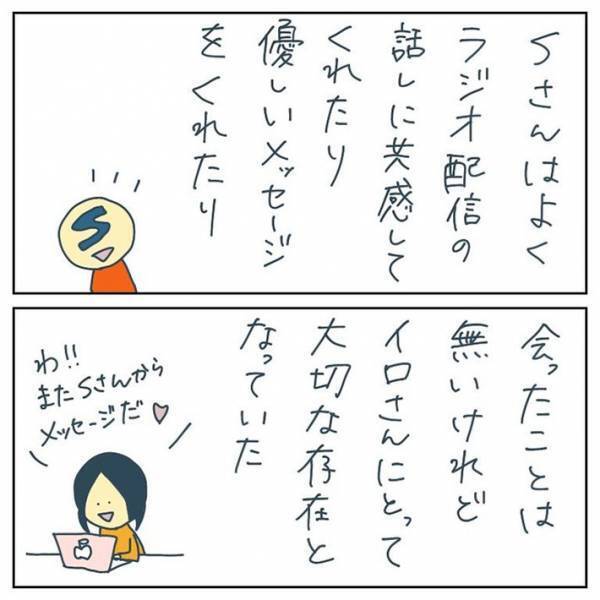 Sさんはよく
ラジオ配信の
話しに共感して
くれたり
優しいメッセージ
をくれたり
S
会ったことは
無いけれど
イロさんにとって
大切な存在と
なっていた
わ!!
またSさんから
メッセージだ♡